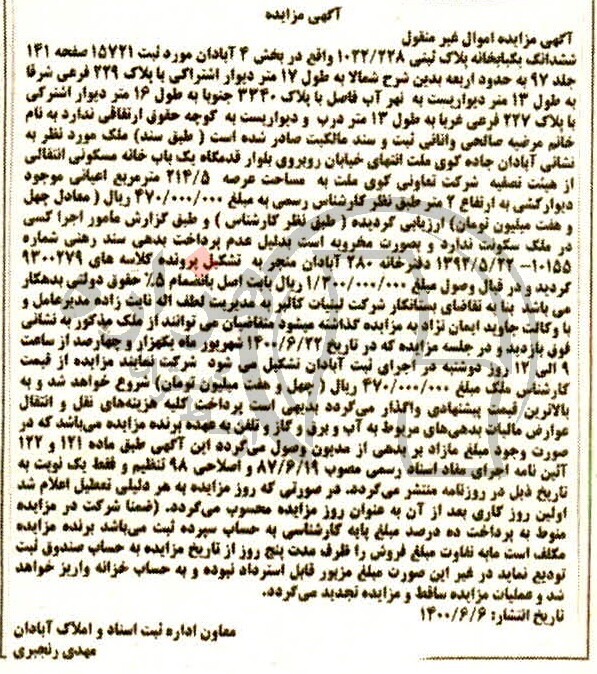 آگهی مزایده
آگهی مزایده اموال غیر منقول
ششدانگ یکبابخانه پلاک ثبتی ۱۰۳۲/۲۲۸ واقع در بخش ۴ آبادان مورد ثبت ۱۵۷۲۱ صفحه ۱۴۱
جلد ۹۷ به حدود اربعه بدین شرح شمالا به طول ۱۷ متر دیوار اشتراکی با پلاک ۲۲۹ فرعی شرقا
به طول ۱۳ متر دیواریست به نهر آب فاصل با پلاک ۳۳۴۰ جنوبا به طول ۱۶ متر دیوار اشترکی
با پلاک ۲۲۷ فرعی غربا به طول ۱۳ متر درب و دیواریست به کوچه حقوق ارتفاقی ندارد به نام
خانم مرضیه صالحی واناني ثبت و سند مالکیت صادر شده است ( طبق سند) ملک مورد نظر به
نشانی آبادان جاده کوی ملت انتهای خیابان روبروی بلوار قدمگاه یک باب خانه مسکونی انتقالی
از هیئت تصفیه شرکت تعاونی کوی ملت به مساحت عرصه ۲۱۴/۵ مترمربع اعیانی موجود
دیوارکشی به ارتفاع ۲ متر طبق نظر کارشناس رسمی به مبلغ ۴۷۰/۰۰۰/۰۰۰ ریال ( معادل چهل
و هفت میلیون تومان) ارزیابی گردیده ( طبق نظر کارشناس ) و طبق گزارش مامور اجرا کسی
در ملک سکونت ندارد و بصورت مخروبه است بدلیل عدم پرداخت بدهی سند رهنی شماره
۱۰۱۵۵– ۱۳۹۲/۵/۲۲ دفترخانه ۲۸۰ آبادان منجر به تشکیل پرونده کلاسه های ۹۳۰۰۲۷۹
گردید و در قبال وصول مبلغ ۱/۲۰۰/۰۰۰/۰۰۰ ریال بابت اصل بانضمام ۵٪ حقوق دولتی بدهکار
می باشد بنا به تقاضای بستانکار شرکت لبنیات کالبر به مدیریت لطف اله ثابت زاده مدیرعامل و
با وکالت جاوید ایمان نژاد به مزایده گذاشته میشود متقاضیان می توانند از ملک مذکور به نشانی
فوق بازدید و در جلسه مزایده که در تاریخ ۱۴۰۰/۶/۲۲ شهریور ماه یکهزار و چهارصد از ساعت
۹ الی ۱۲ روز دوشنبه در اجرای ثبت آبادان تشکیل می شود شرکت نمایند مزایده از قیمت
کارشناس ملک مبلغ ۴۷۰/۰۰۰/۰۰۰ ریال ( چهل و هفت میلیون تومان) شروع خواهد شد و به
بالاترین قیمت پیشنهادی واگذار می‌گردد بدیهی است پرداخت کلیه هزینه‌های نقل و انتقال
عوارض مالیات بدهی‌های مربوط به آب و برق و گاز و تلفن به عهده برنده مزایده می‌باشد که در
صورت وجود مبلغ مازاد بر بدهی از مدیون وصول می‌گردد این آگهی طبق ماده ۱۲۱ و ۱۲۲
آئین نامه اجرای مفاد اسناد رسمی مصوب ۸۷/۶/۱۹ و اصلاحی ۹۸ تنظیم و فقط یک نوبت به
تاریخ ذیل در روزنامه منتشر می‌گردد. در صورتی که روز مزایده به هر دلیلی تعطیل اعلام شد
اولین روز کاری بعد از آن به عنوان روز مزایده محسوب می‌گردد. (ضمنا شرکت در مزایده
منوط به پرداخت ده درصد مبلغ پایه کارشناسی به حساب سپرده ثبت می‌باشد برنده مزایده
مکلف است مابه تفاوت مبلغ فروش را ظرف مدت پنج روز از تاریخ مزایده به حساب صندوق ثبت
تودیع نماید در غیر این صورت مبلغ مزبور قابل استرداد نبوده و به حساب خزانه واریز خواهد
شد و عملیات مزایده ساقط و مزایده تجدید می‌گردد.
تاریخ انتشار: ۱۴۰۰/۶/۶
معاون اداره ثبت اسناد و املاک آبادان
مهدی رنجبری